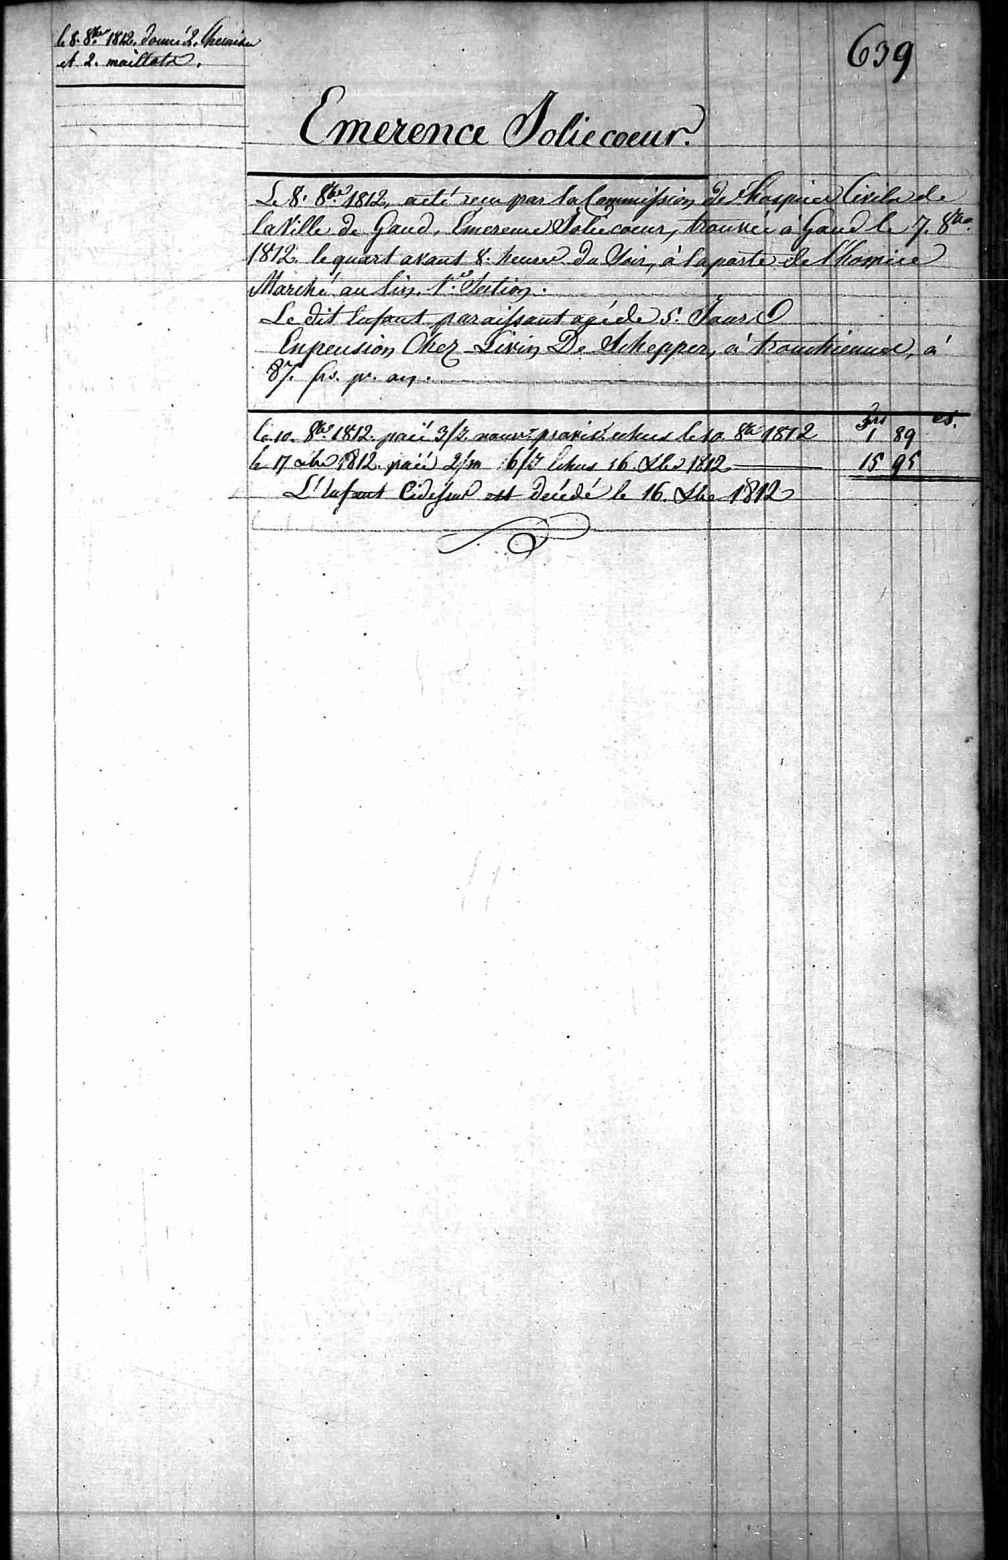 le 8. 8bre 1812. donné 2. Chemises
et 2. maillots.
639
Emerence Joliecoeur.
Le 8. 8bre 1812, a eté reçu par la Commission de hospices Civils de
la Ville de Gand, Emerence Joliecoeur, trouvée à Gand le 7. 8bre
1812. le quart avant 8. heures du Soir, à la porte de l'hospice
Marché au lin, 1e Section.
Le dit Enfant paraissant agé de 5. Jours
En pension Chez Livin De Schepper, à tronchiennes, à
87. frs. pr. an.
frs cs.
le 10. 8bre 1812. paié 3/j. echus le 10 8bre 1812 1 89
le 17 Xbre 1812. paié 2/m 6/j Echus 16 Xbre 1812 15 95
L'Enfant Cidessus est Décédé le 16. Xbre 1812